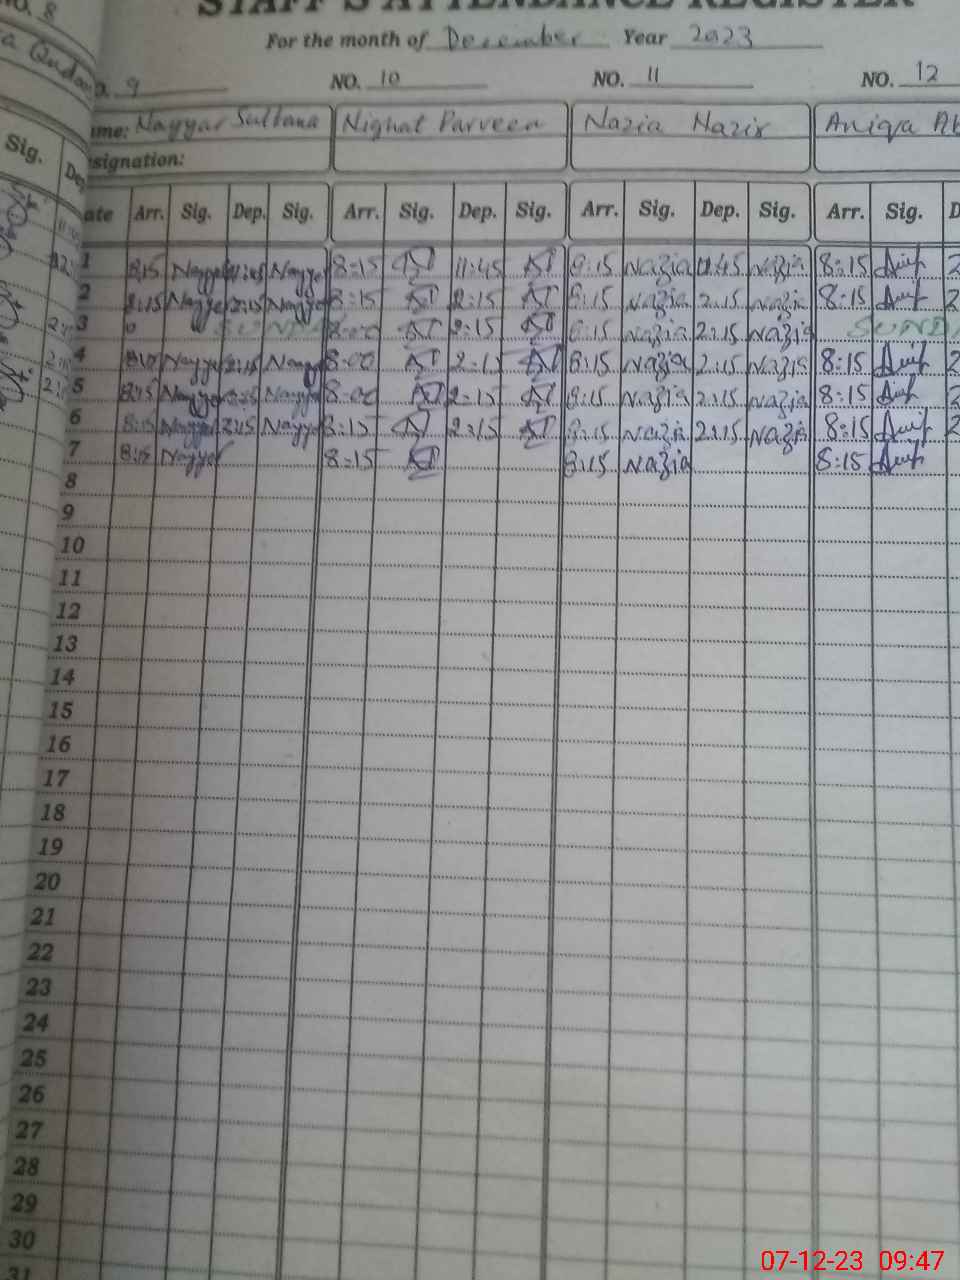 STAFF'S ATTENDANCE REGISTER
For the month of December Year 2023
8
9 NO. 10 NO. 11 NO. 12
Name: Nayyar Sultana Nighat Parveen Nazia Nazir Aniqa Ab
signation:
Sig. De
ate Arr. Sig. Dep. Sig. Arr. Sig. Dep. Sig. Arr. Sig. Dep. Sig. Arr. Sig. D
1 8:15 Nayyar 11:45 Nayyar 8:15 11:45 8:15 Nazia 11:45 Nazia 8:15 2
2 8:15 Nayyar 2:15 Nayyar 8:15 2:15 8:15 Nazia 2:15 Nazia 8:15 2
3 SUNDA 8:00 2:15 8:15 Nazia 2:15 Nazia SUND
4 Nayyar 2:15 Nayyar 8:00 2:1 8:15 Nazia 2:15 Nazia 8:15 2
5 8:15 Nayyar 2:15 Nayyar 8:00 2:15 8:15 Nazia 2:15 Nazia 8:15 2
6 8:15 Nayyar 2:15 Nayyar 8:15 2:15 8:15 Nazia 2:15 Nazia 8:15 2
7 8:15 Nayyar 8:15 8:15 Nazia 8:15
8
9
10
11
12
13
14
15
16
17
18
19
20
21
22
23
24
25
26
27
28
29
30
31
07-12-23 09:47